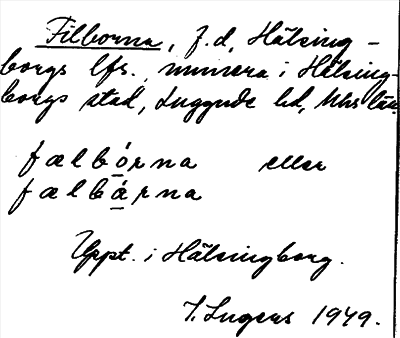 Filborna, f.d. Hälsing-
borgs lfs., numera i Hälsing-
borgs stad, Luggude hd, Mhs län.
fælbórna eller
fælbárna
Uppt. i Hälsingborg.
I. Ingers 1949.